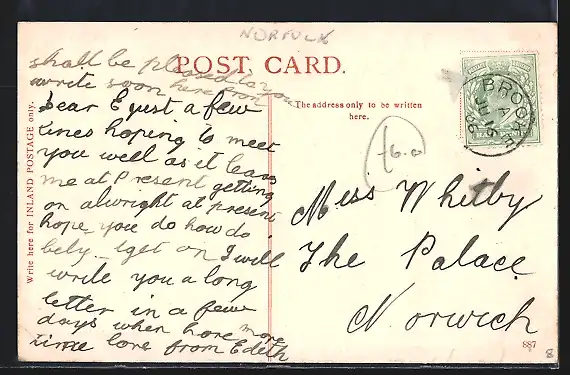 NORFOLK
POST CARD.
shall be pleased to you
write soon
Dear E just a few
lines hoping to meet
you well as it leavs
me at Present getting
on alwright at present
hope you do how do
bely get on I will
write you a long
letter in a few
days when have more
time love from Edeth
Write here for INLAND POSTAGE only.
The address only to be written
here.
£6.0
BROOKE
A
JU 15
06
Miss Whitby
The Palace
Norwich
887
8